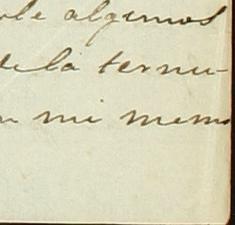 algunos
de la ternu-
mi mem